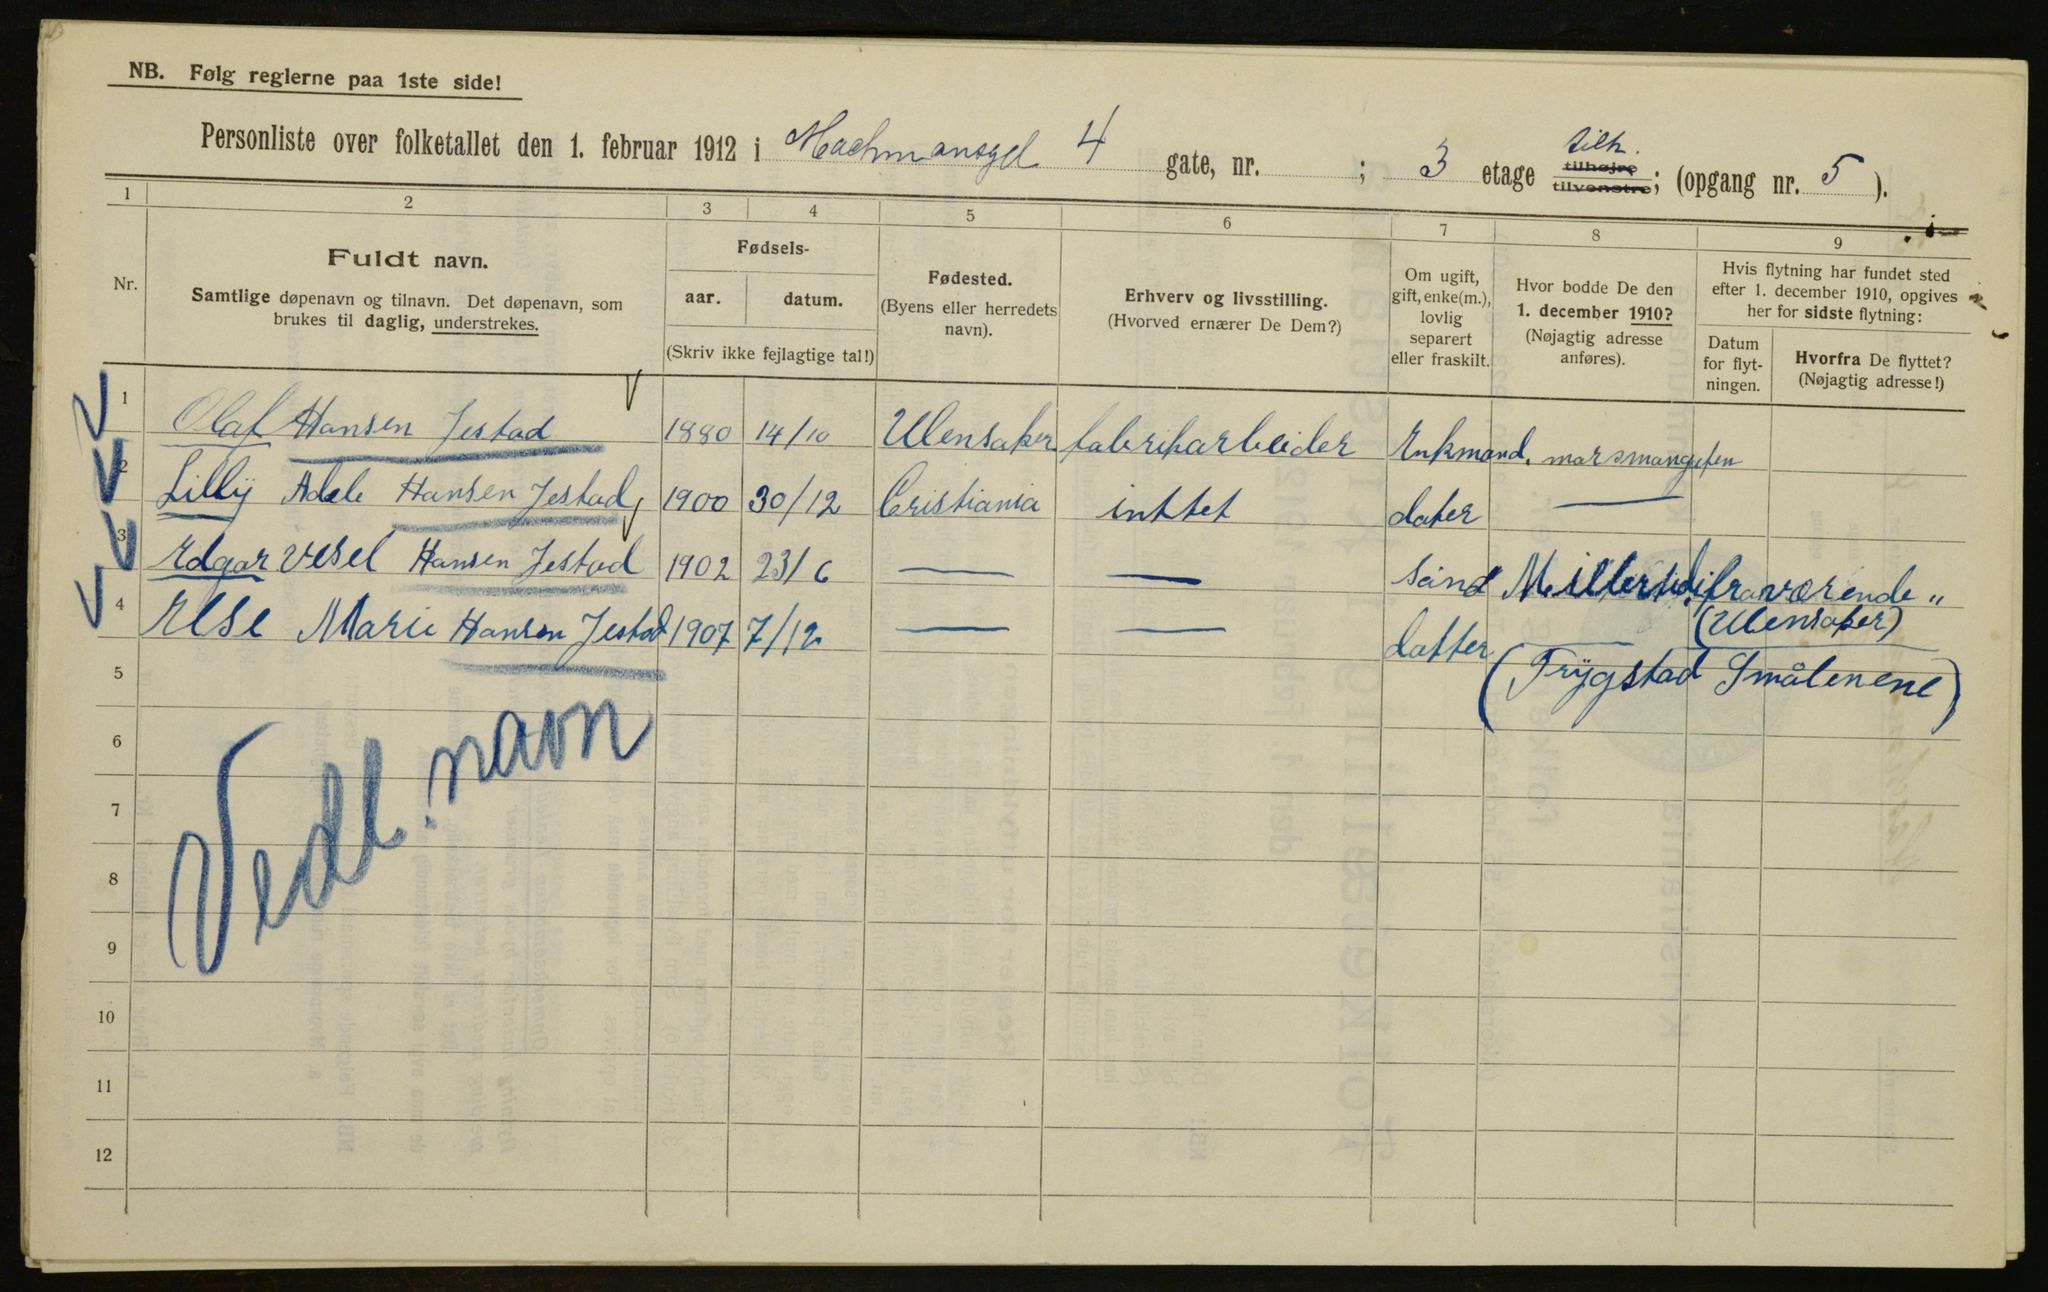 NB. Følg reglerne paa 1ste side!
Personliste over folketallet den 1. februar 1912 i 4 gate, nr. ; 3 etage tilh. tilhøjre tilvenstre; (opgang nr. 5 ).
1 2 3 4 5 6 7 8 9
Nr.
Fuldt navn.
Samtlige døpenavn og tilnavn. Det døpenavn, som
brukes til daglig, understrekes.
Fødsels-
aar. datum.
(Skriv ikke fejlagtige tal!)
Fødested.
(Byens eller herredets
navn).
Erhverv og livsstilling.
(Hvorved ernærer De Dem?)
Om ugift,
gift, enke(m.),
lovlig
separert
eller fraskilt.
Hvor bodde De den
1. december 1910?
(Nøjagtig adresse
anføres).
Hvis flytning har fundet sted
efter 1. december 1910, opgives
her for sidste flytning:
Datum
for flyt-
ningen.
Hvorfra De flyttet?
(Nøjagtig adresse!)
1 Olaf Hansen Jestad 1880 14/10 Ulensaker fabrikarbeider Enkmand.
2 Lilly Adele Hansen Jestad 1900 30/12 Cristiania inttet dater —
3 Edgar Vesel Hansen Jestad 1902 23/6 — — sønd fraværende "
(Ulensaker)
4 Else Marie Hansen Jestad 1907 7/12 — — datter —
(Trygstad Smålenene)
5
6
7
8
9
10
11
12
Vedl. navn